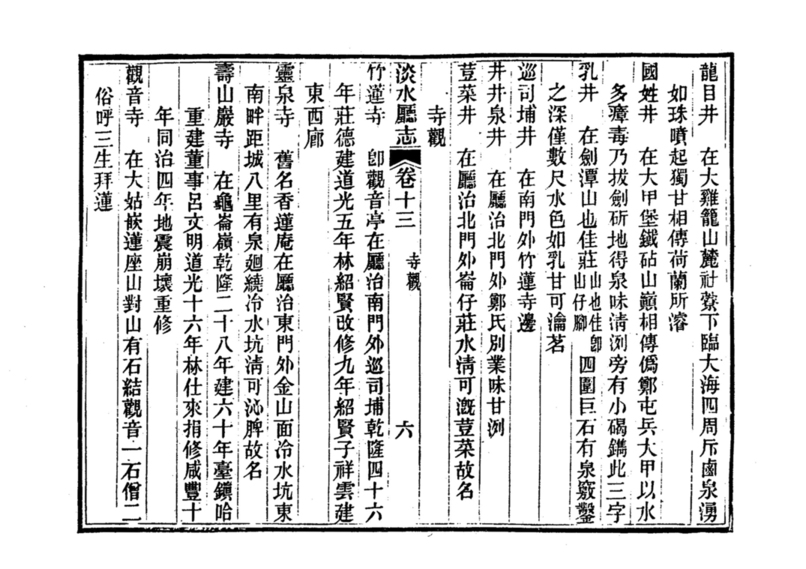 龍目井　在大雞籠山麓社藔下臨大海四周斥鹵泉湧
如珠噴起獨甘相傳荷蘭所濬
國姓井　在大甲堡鐵砧山巓相傳僞鄭屯兵大甲以水
多瘴毒乃拔劍斫地得泉味清洌旁有小碣鐫此三字
乳井　在劍潭山也佳莊山也佳卽山仔腳四圍巨石有泉竅鑿
之深僅數尺水色如乳甘可瀹茗
巡司埔井　在南門外竹蓮寺邊
井井泉井　在廳治北門外鄭氏別業味甘洌
荳菜井　在廳治北門外崙仔莊水清可漑荳菜故名
寺觀
淡水廳志　卷十三　寺觀　六
竹蓮寺　卽觀音亭在廳治南門外巡司埔乾隆四十六
年莊德建道光五年林紹賢改修九年紹賢子祥雲建
東西廊
靈泉寺　舊名香蓮庵在廳治東門外金山面冷水坑東
南畔距城八里有泉廻繞冷水坑清可沁脾故名
壽山巖寺　在龜崙嶺乾隆二十八年建六十年臺鎭哈
重建董事呂文明道光十六年林仕來捐修咸豐十
年同治四年地震崩壞重修
觀音寺　在大姑嵌蓮座山對山有石結觀音一石僧二
俗呼三生拜蓮